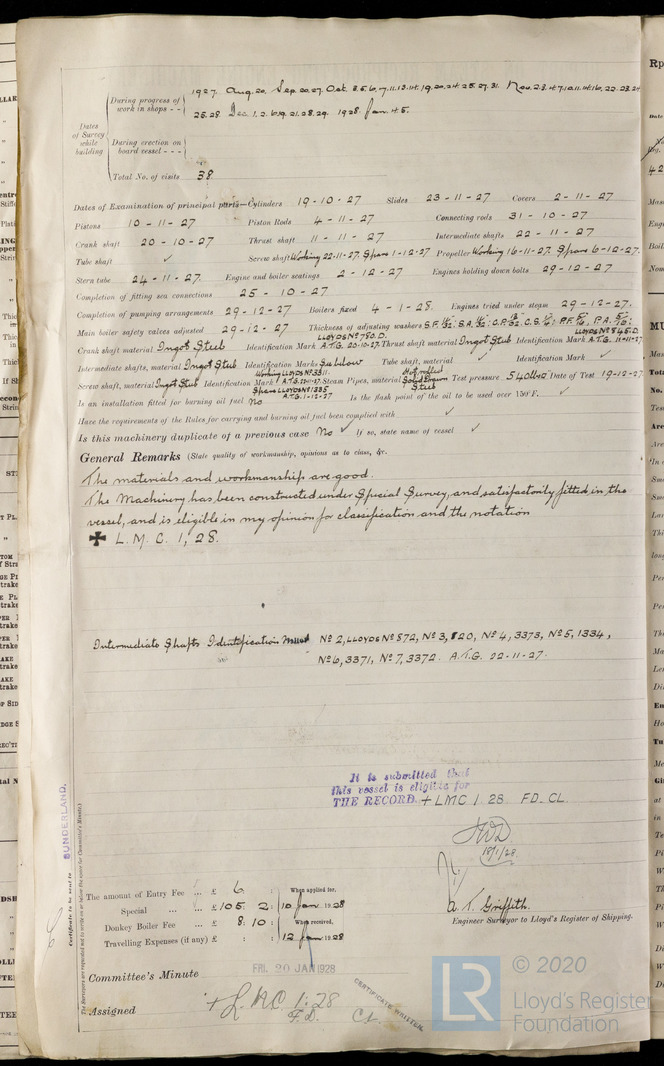 1927. Aug. 20. Sep. 20. 27. Oct. 3. 5. 6. 7. 11. 13. 14. 19. 20. 24. 25. 27. 31. Nov. 2. 3. 4. 7. 10. 11. 14. 16. 22. 23. 24
During progress of work in shops - -
25. 28. Dec. 1. 2. 6. 19. 21. 28. 29. 1928 Jan. 4. 5.
Dates of Survey while building
During erection on board vessel - - -
Total No. of visits 38
Dates of Examination of principal parts—Cylinders 19-10-27 Slides 23-11-27 Covers 2-11-27
Pistons 10-11-27 Piston Rods 4-11-27 Connecting rods 31-10-27
Crank shaft 20-10-27 Thrust shaft 11-11-27 Intermediate shafts 22-11-27
Tube shaft ✓ Screw shaft Working 22-11-27. Spare 1-12-27 Propeller Working 16-11-27. Spare 6-12-27.
Stern tube 24-11-27. Engine and boiler seatings 2-12-27 Engines holding down bolts 29-12-27
Completion of fitting sea connections 25-10-27
Completion of pumping arrangements 29-12-27 Boilers fixed 4-1-28. Engines tried under steam 29-12-27.
Main boiler safety valves adjusted 29-12-27 Thickness of adjusting washers
Crank shaft material Ingot Steel Identification Mark LLOYDS No 780. D. A.T.G. 20-10-27 Thrust shaft material Ingot Steel Identification Mark LLOYDS No 845. D. A.T.G. 11-11-27
Intermediate shafts, material Ingot Steel Identification Marks See below Tube shaft, material ✓ Identification Mark ✓
Screw shaft, material Ingot Steel Identification Mark Working LLOYDS No 3311. A.T.G. 22-11-27. Spare LLOYDS No 1335 A.T.G. 1-12-27 Steam Pipes, material Hot rolled Solid Drawn Steel Test pressure 540 lbs Date of Test 19-12-27
Is an installation fitted for burning oil fuel No Is the flash point of the oil to be used over 150°F. ✓
Have the requirements of the Rules for carrying and burning oil fuel been complied with ✓
Is this machinery duplicate of a previous case No ✓ If so, state name of vessel ✓
General Remarks (State quality of workmanship, opinions as to class, &c.
The materials and workmanship are good.
The Machinery has been constructed under Special Survey, and satisfactorily fitted in the
vessel, and is eligible in my opinion for classification and the notation
✠ L. M. C. 1, 28.
Intermediate Shafts Identification No 2, LLOYDS No 872, No 3, 820, No 4, 3373, No 5, 1334,
No 6, 3371, No 7, 3372. A.T.G. 22-11-27.
It is submitted that
this vessel is eligible for
THE RECORD. + LMC 1 28 FD. CL.
18/1/28
SUNDERLAND.
Certificate to be sent to
(The Surveyors are requested not to write on or below the space for Committee's Minute.)
The amount of Entry Fee ... £ 6 : : When applied for,
Special ... ... £ 105 : 2 : 10 Jan 1928
Donkey Boiler Fee ... £ 8 : 10 : When received,
Travelling Expenses (if any) £ : : 12 Jan 1928
A. T. Griffith.
Engineer Surveyor to Lloyd's Register of Shipping.
Committee's Minute FRI. 20 JAN 1928
Assigned + L.M.C. 1.28
F.D. CL.
CERTIFICATE WRITTEN.
LR
© 2020
Lloyd's Register
Foundation